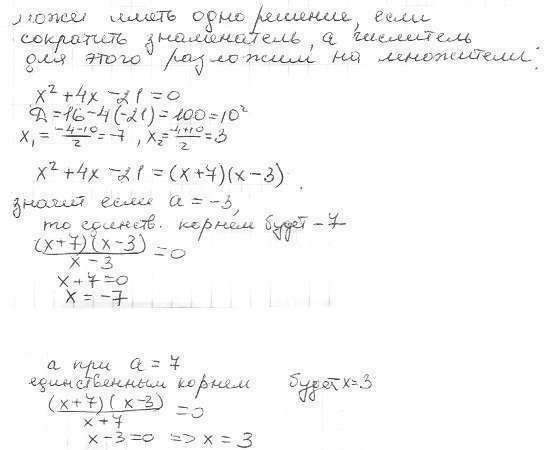 может иметь одно решение, если
сократить знаменатель, а числитель
для этого разложим на множители:
x² + 4x - 21 = 0
Д = 16 - 4(-21) = 100 = 10²
x₁ = (-4-10)/2 = -7, x₂ = (-4+10)/2 = 3
x² + 4x - 21 = (x+7)(x-3).
значит если a = -3,
то единств. корнем будет -7
(x+7)(x-3)
/(x-3) = 0
x + 7 = 0
x = -7
а при a = 7
единственным корнем будет x = 3
(x+7)(x-3)
/(x+7) = 0
x - 3 = 0 => x = 3